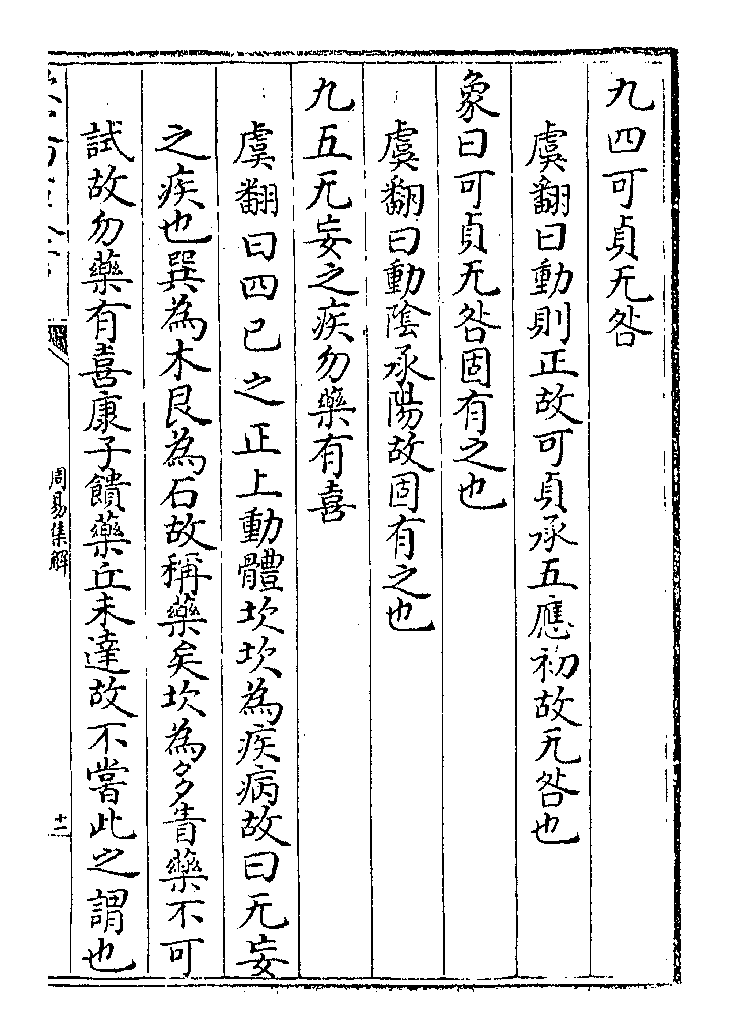 九四可貞无咎
虞翻曰動則正故可貞承五應初故无咎也
象曰可貞无咎固有之也
虞翻曰動隂承陽故固有之也
九五无妄之疾勿藥有喜
虞翻曰四已之正上動體坎坎為疾病故曰无妄
之疾也巽為木艮為石故稱藥矣坎為多眚藥不可
試故勿藥有喜康子饋藥丘未達故不嘗此之謂也
周易集解
十二